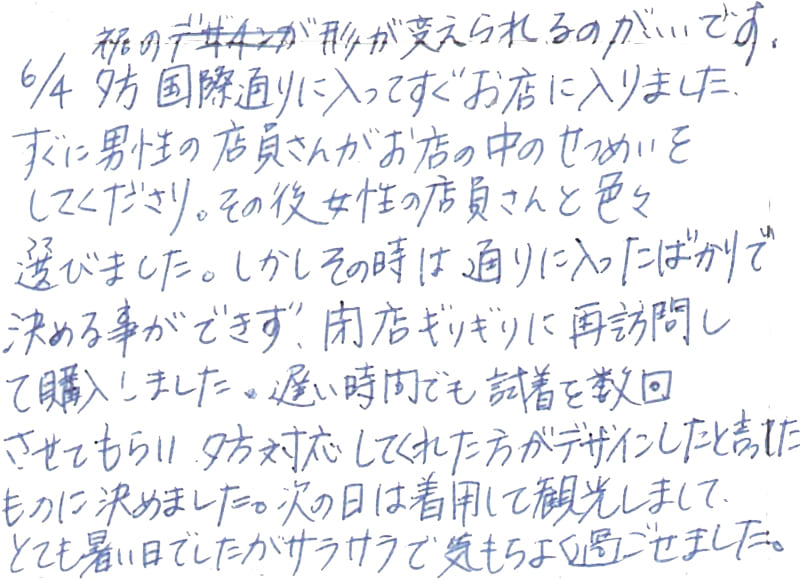 裾のデザインが形が変えられるのがいいです。
6/4 夕方 国際通りに入ってすぐお店に入りました、
すぐに男性の店員さんがお店の中のせつめいを
してくださり。その後女性の店員さんと色々
選びました。しかしその時は通りに入ったばかりで
決める事ができず、閉店ギリギリに再訪問し
て購入しました。遅い時間でも試着を数回
させてもらい 夕方対応してくれた方がデザインしたと言った
ものに決めました。次の日は着用して観光しまして、
とても暑い日でしたがサラサラで気もちよく過ごせました。